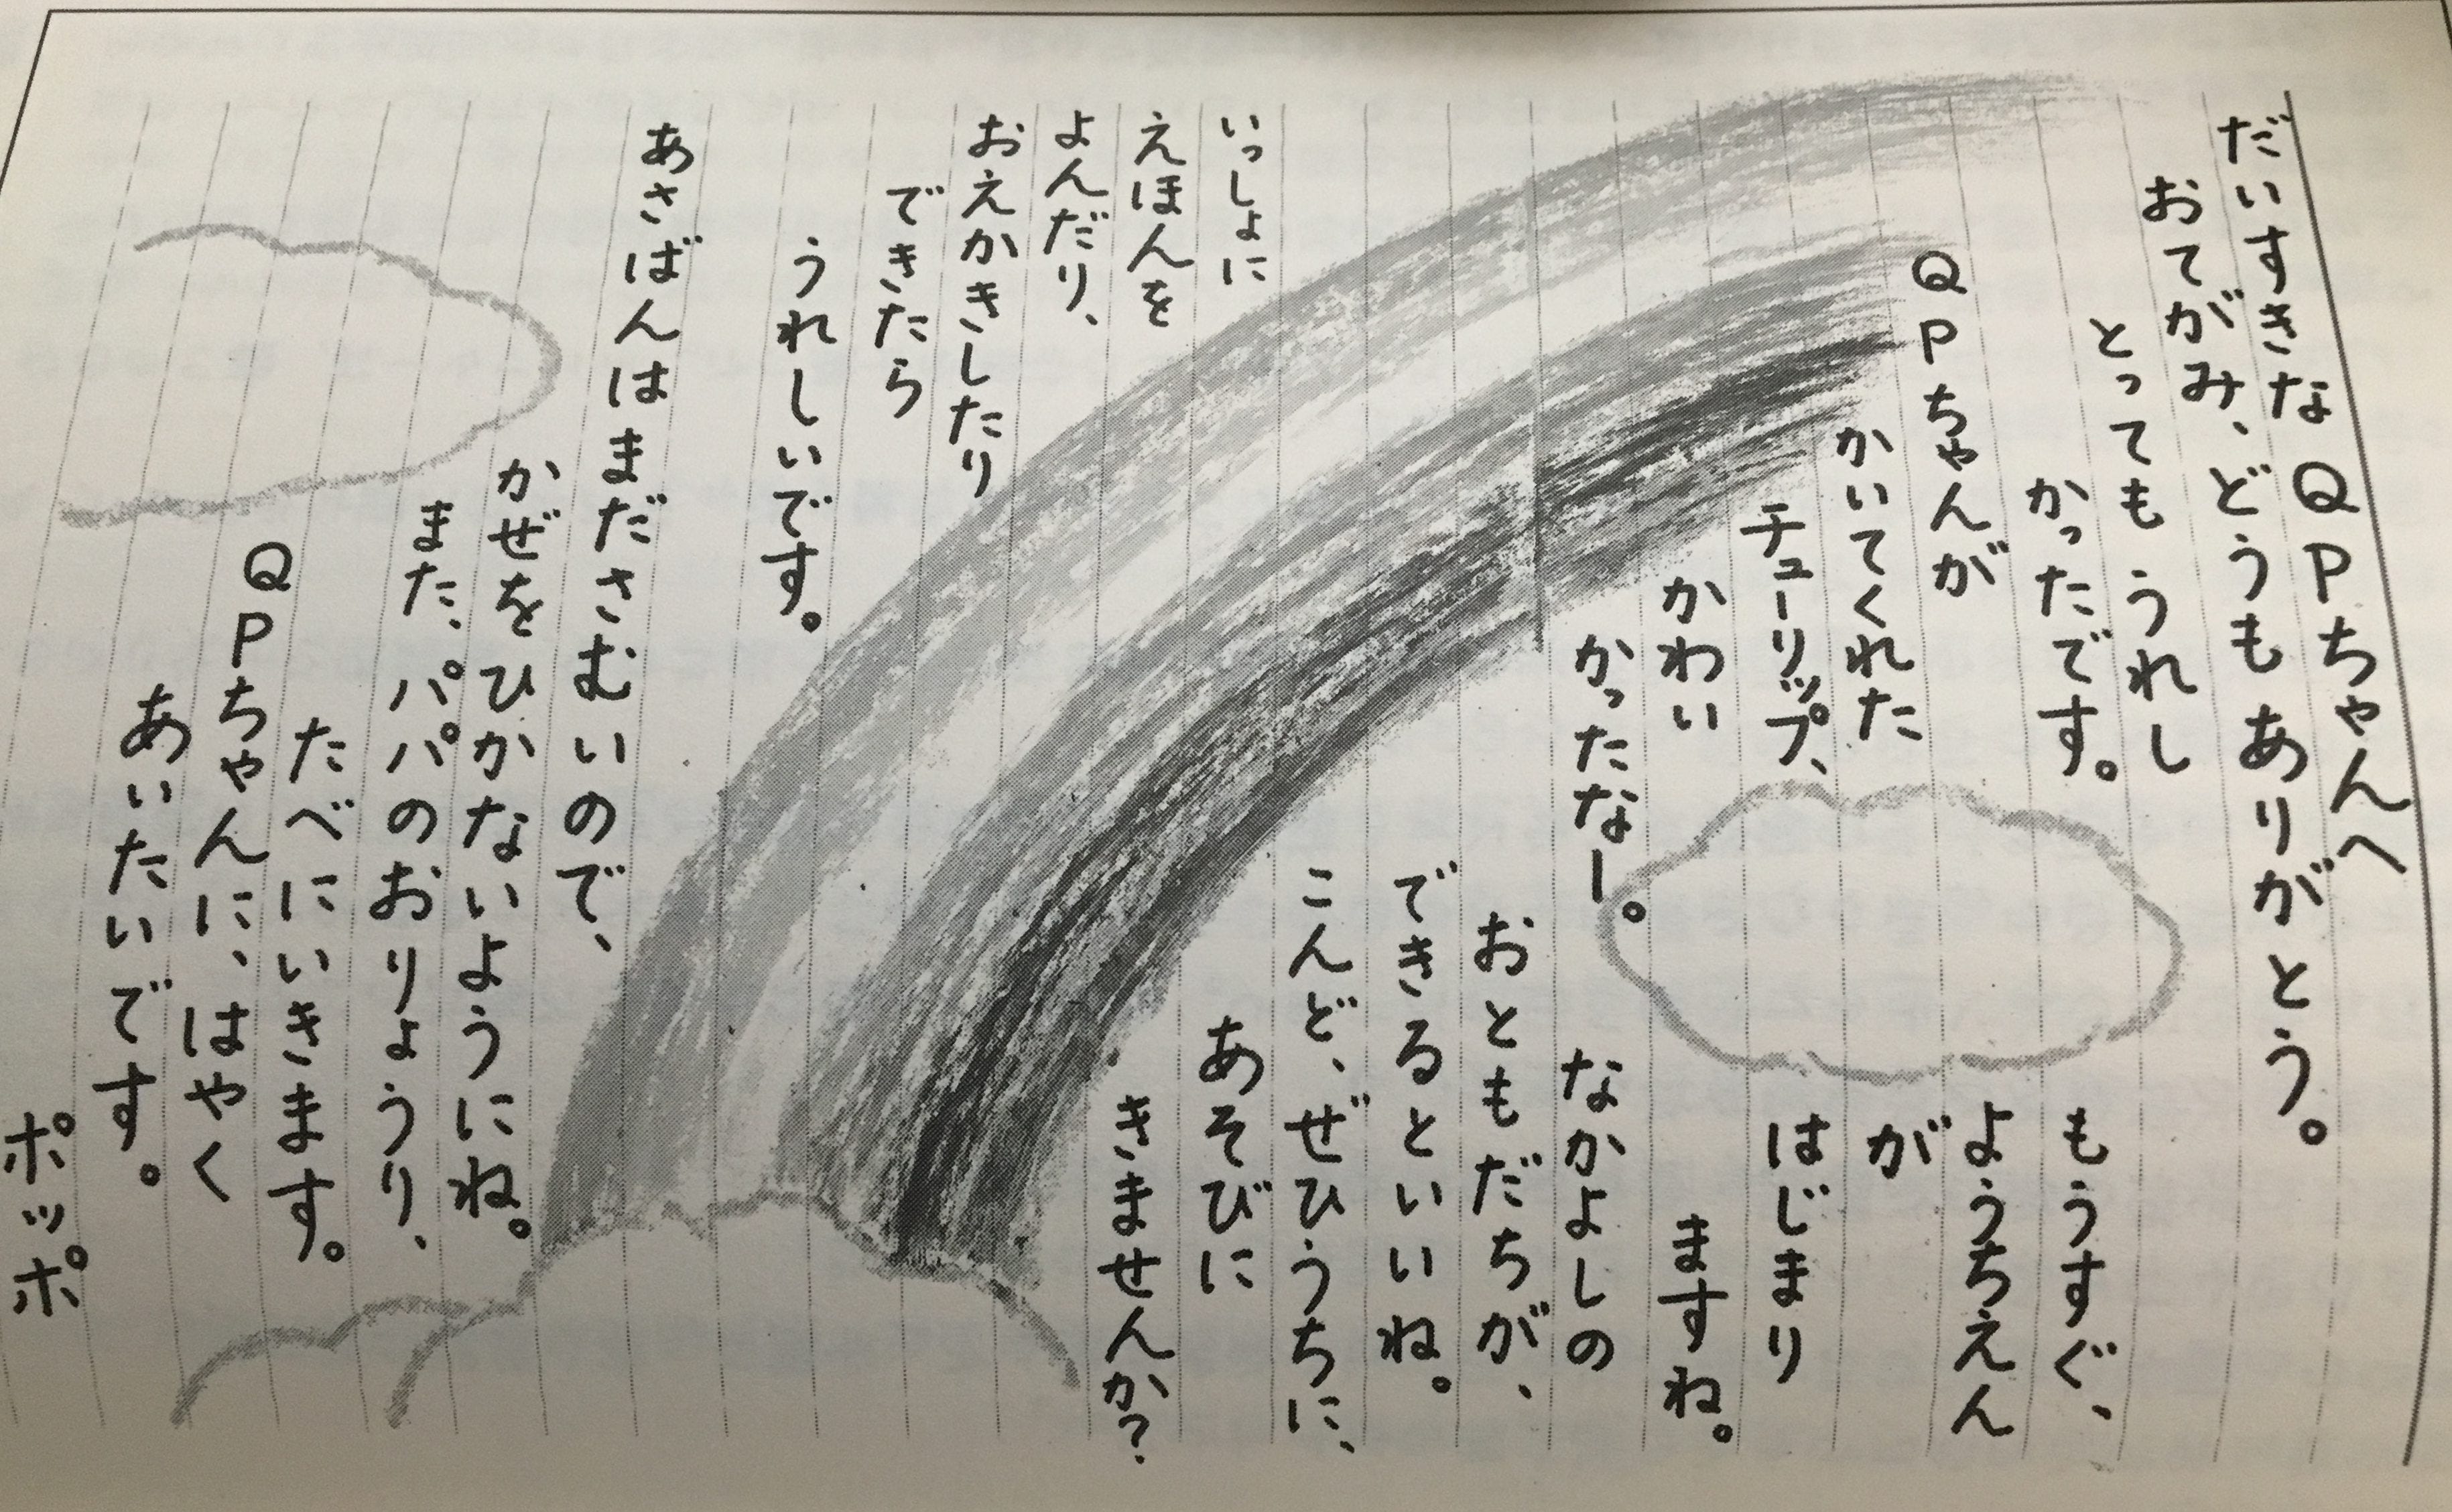 だいすきなQPちゃんへ
おてがみ、どうもありがとう。
とってもうれし
かったです。
QPちゃんが
かいてくれた
チューリップ、
かわい
かったなー。
もうすぐ、
ようちえん
が
はじまり
ますね。
なかよしの
おともだちが、
できるといいね。
こんど、ぜひうちに、
あそびに
きませんか?
いっしょに
えほんを
よんだり、
おえかきしたり
できたら
うれしいです。
あさばんはまださむいので、
かぜをひかないようにね。
また、パパのおりょうり、
たべにいきます。
QPちゃんに、はやく
あいたいです。
ポッポ